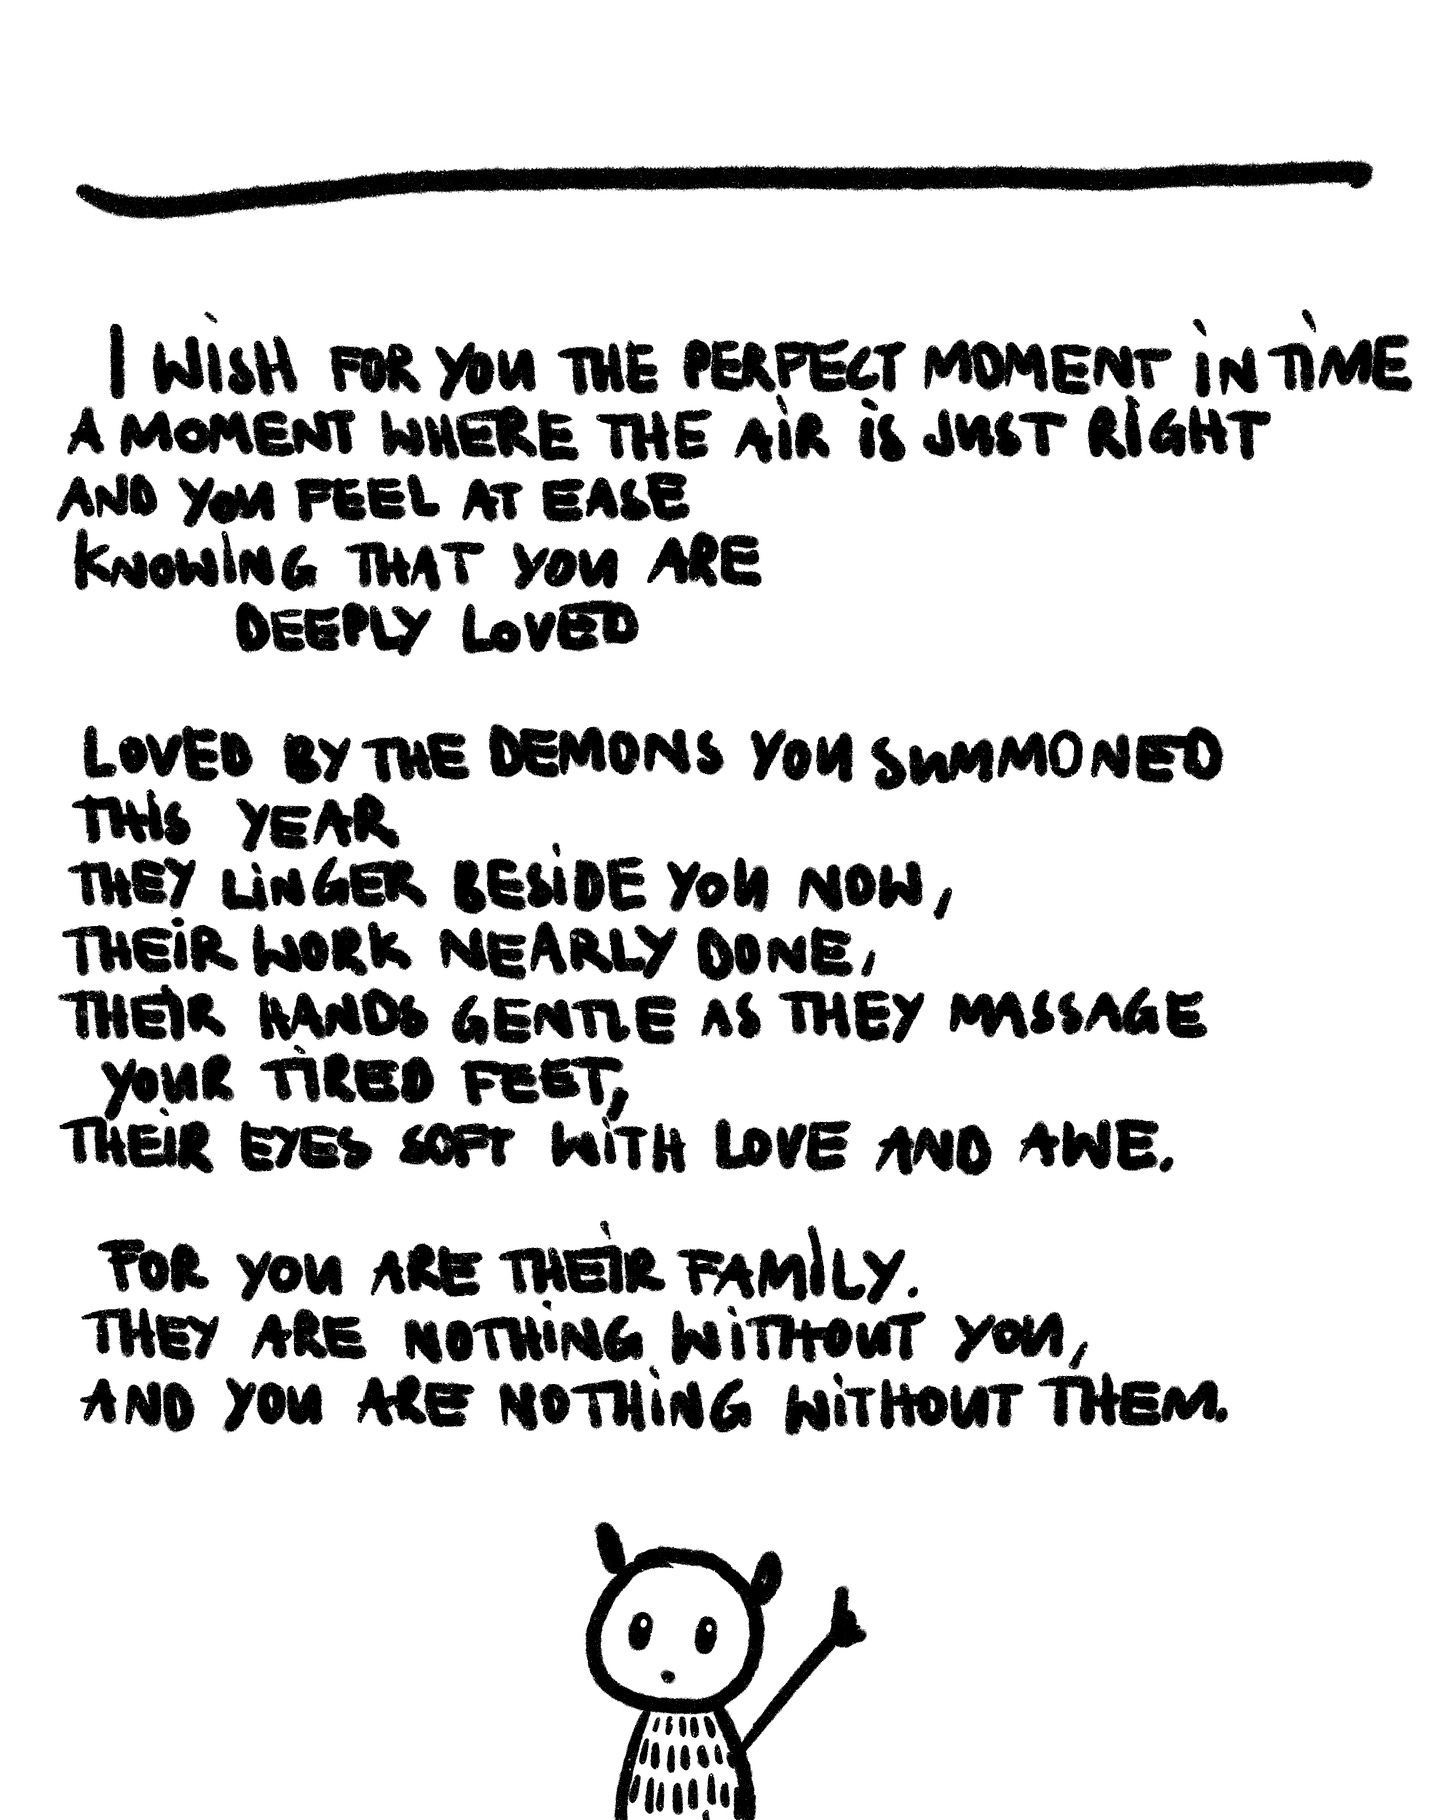 I WISH FOR YOU THE PERFECT MOMENT IN TIME
A MOMENT WHERE THE AIR IS JUST RIGHT
AND YOU FEEL AT EASE
KNOWING THAT YOU ARE
DEEPLY LOVED
LOVED BY THE DEMONS YOU SUMMONED
THIS YEAR
THEY LINGER BESIDE YOU NOW,
THEIR WORK NEARLY DONE,
THEIR HANDS GENTLE AS THEY MASSAGE
YOUR TIRED FEET,
THEIR EYES SOFT WITH LOVE AND AWE.
FOR YOU ARE THEIR FAMILY.
THEY ARE NOTHING WITHOUT YOU,
AND YOU ARE NOTHING WITHOUT THEM.